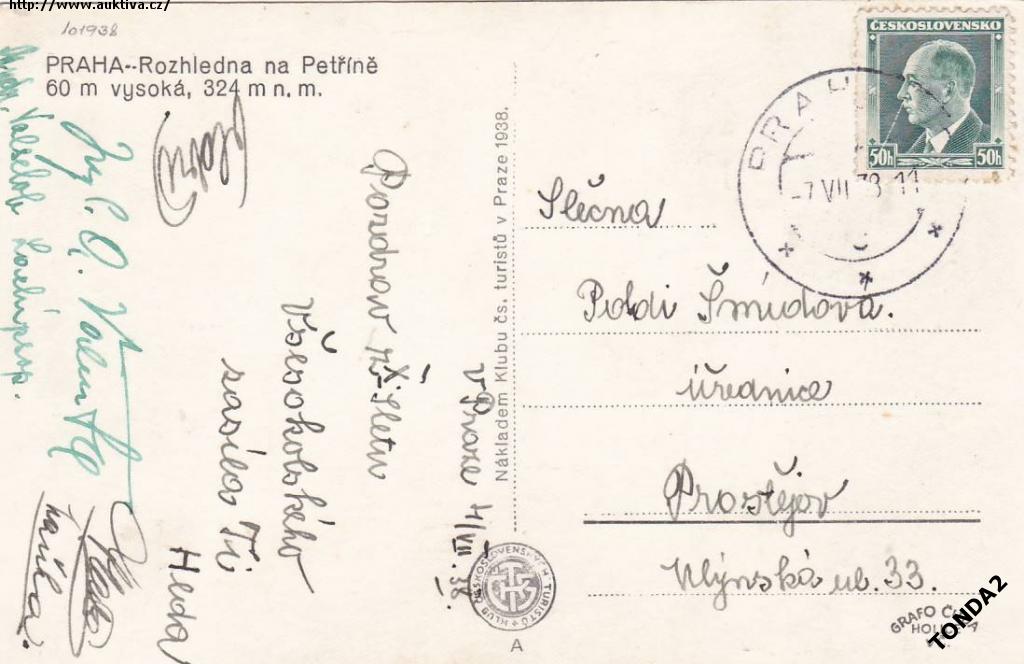 http://www.auktiva.cz/
101938
PRAHA--Rozhledna na Petříně
60 m vysoká, 324 m n. m.
v Praze 4/VII. 38.
Pozdrav z X. Sletu
Všesokolského
zasílá Ti
Heda
Ing C. Q.
Nákladem Klubu čs. turistů v Praze 1938.
KLUB ČESKOSLOVENSKÝCH TURISTŮ
A
ČESKOSLOVENSKO
50h 50h
PRAHA
-7.VII.38-11
Slečna
Poldi Šmídova.
úřednice
Prostějov
Mlýnská ul. 33.
GRAFO
TONDA2